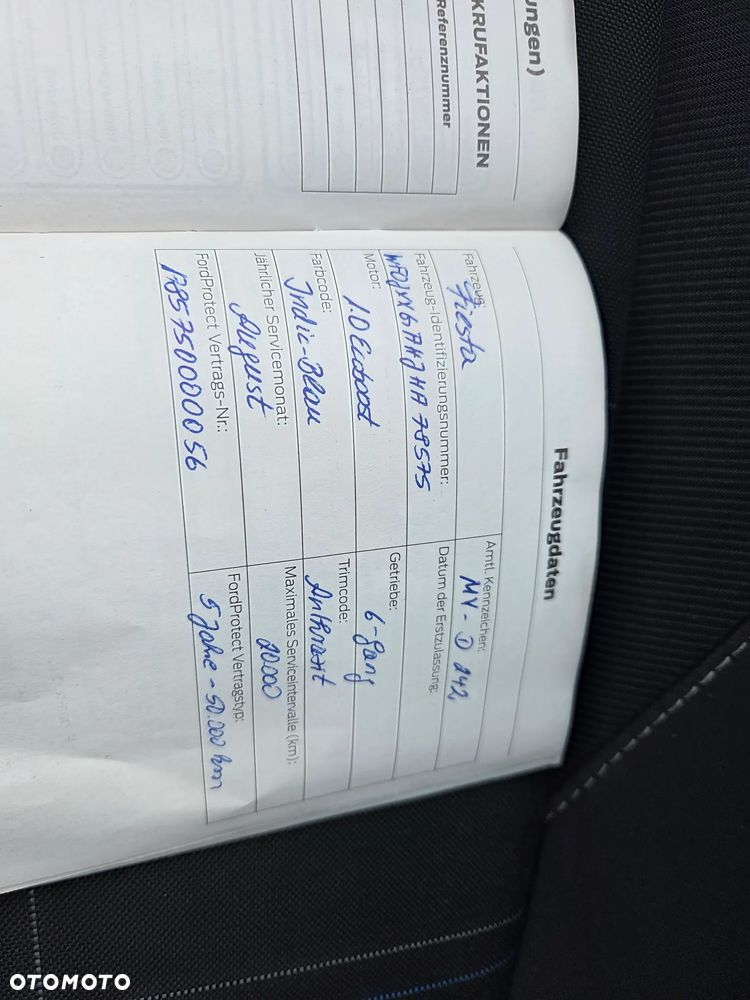 ungen)
KRUFAKTIONEN
Referenznummer
Fahrzeugdaten
Fahrzeug:
Fiesta
Amtl. Kennzeichen:
MY - D 242
Fahrzeug-Identifizierungsnummer:
78575
Datum der Erstzulassung:
Motor:
1.0 Ecoboost
Getriebe:
6-gang
Farbcode:
Indic-Blau
Trimcode:
Anthrazit
Jährlicher Servicemonat:
August
Maximales Serviceintervalle (km):
20.000
FordProtect Vertrags-Nr.:
1785750000056
FordProtect Vertragstyp:
5 Jahre - 50.000 km
OTOMOTO